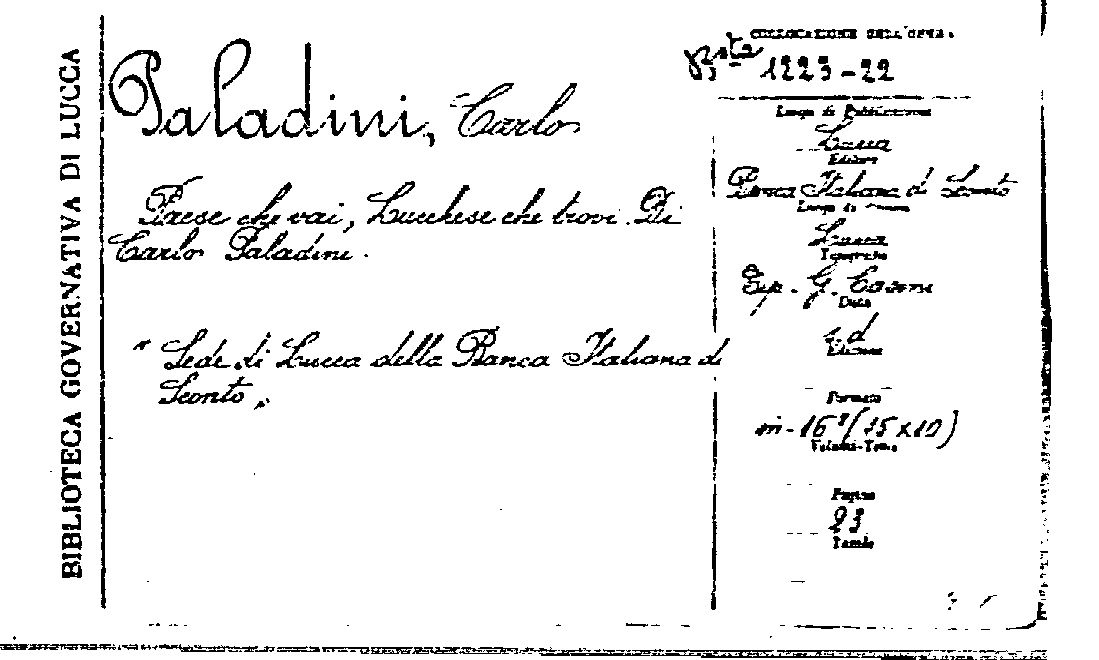 BIBLIOTECA GOVERNATIVA DI LUCCA
Paladini, Carlo
Paese che vai, Lucchese che trovi. Di
Carlo Paladini.
" Sede di Lucca della Banca Italiana di
Sconto "
COLLOCAZIONE DELL'OPERA
Bsta 1223-22
Luogo di Pubblicazione
Lucca
Editore
Banca Italiana di Sconto
Luogo di
Lucca
Tipografia
Tip. G. Casoni
Data
s. d
Edizione
Formato
in-16°(15x10)
Volumi-Tomi
Pagine
23
Tavole